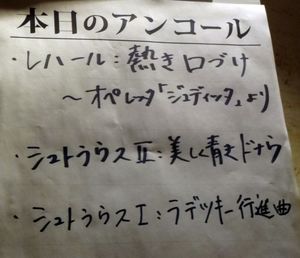 本日のアンコール
・レハール:熱き口づけ
～オペレッタ「ジュディッタ」より
・シュトラウスⅡ:美しく青きドナウ
・シュトラウスⅠ:ラデツキー行進曲